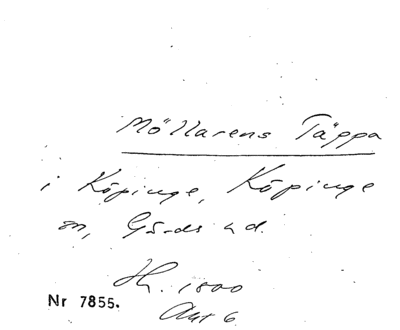 Möllarens Täppa
i Köpinge, Köpinge
sn, Gärds hd.
Hr. 1800
Nr 7855.
Akt 6